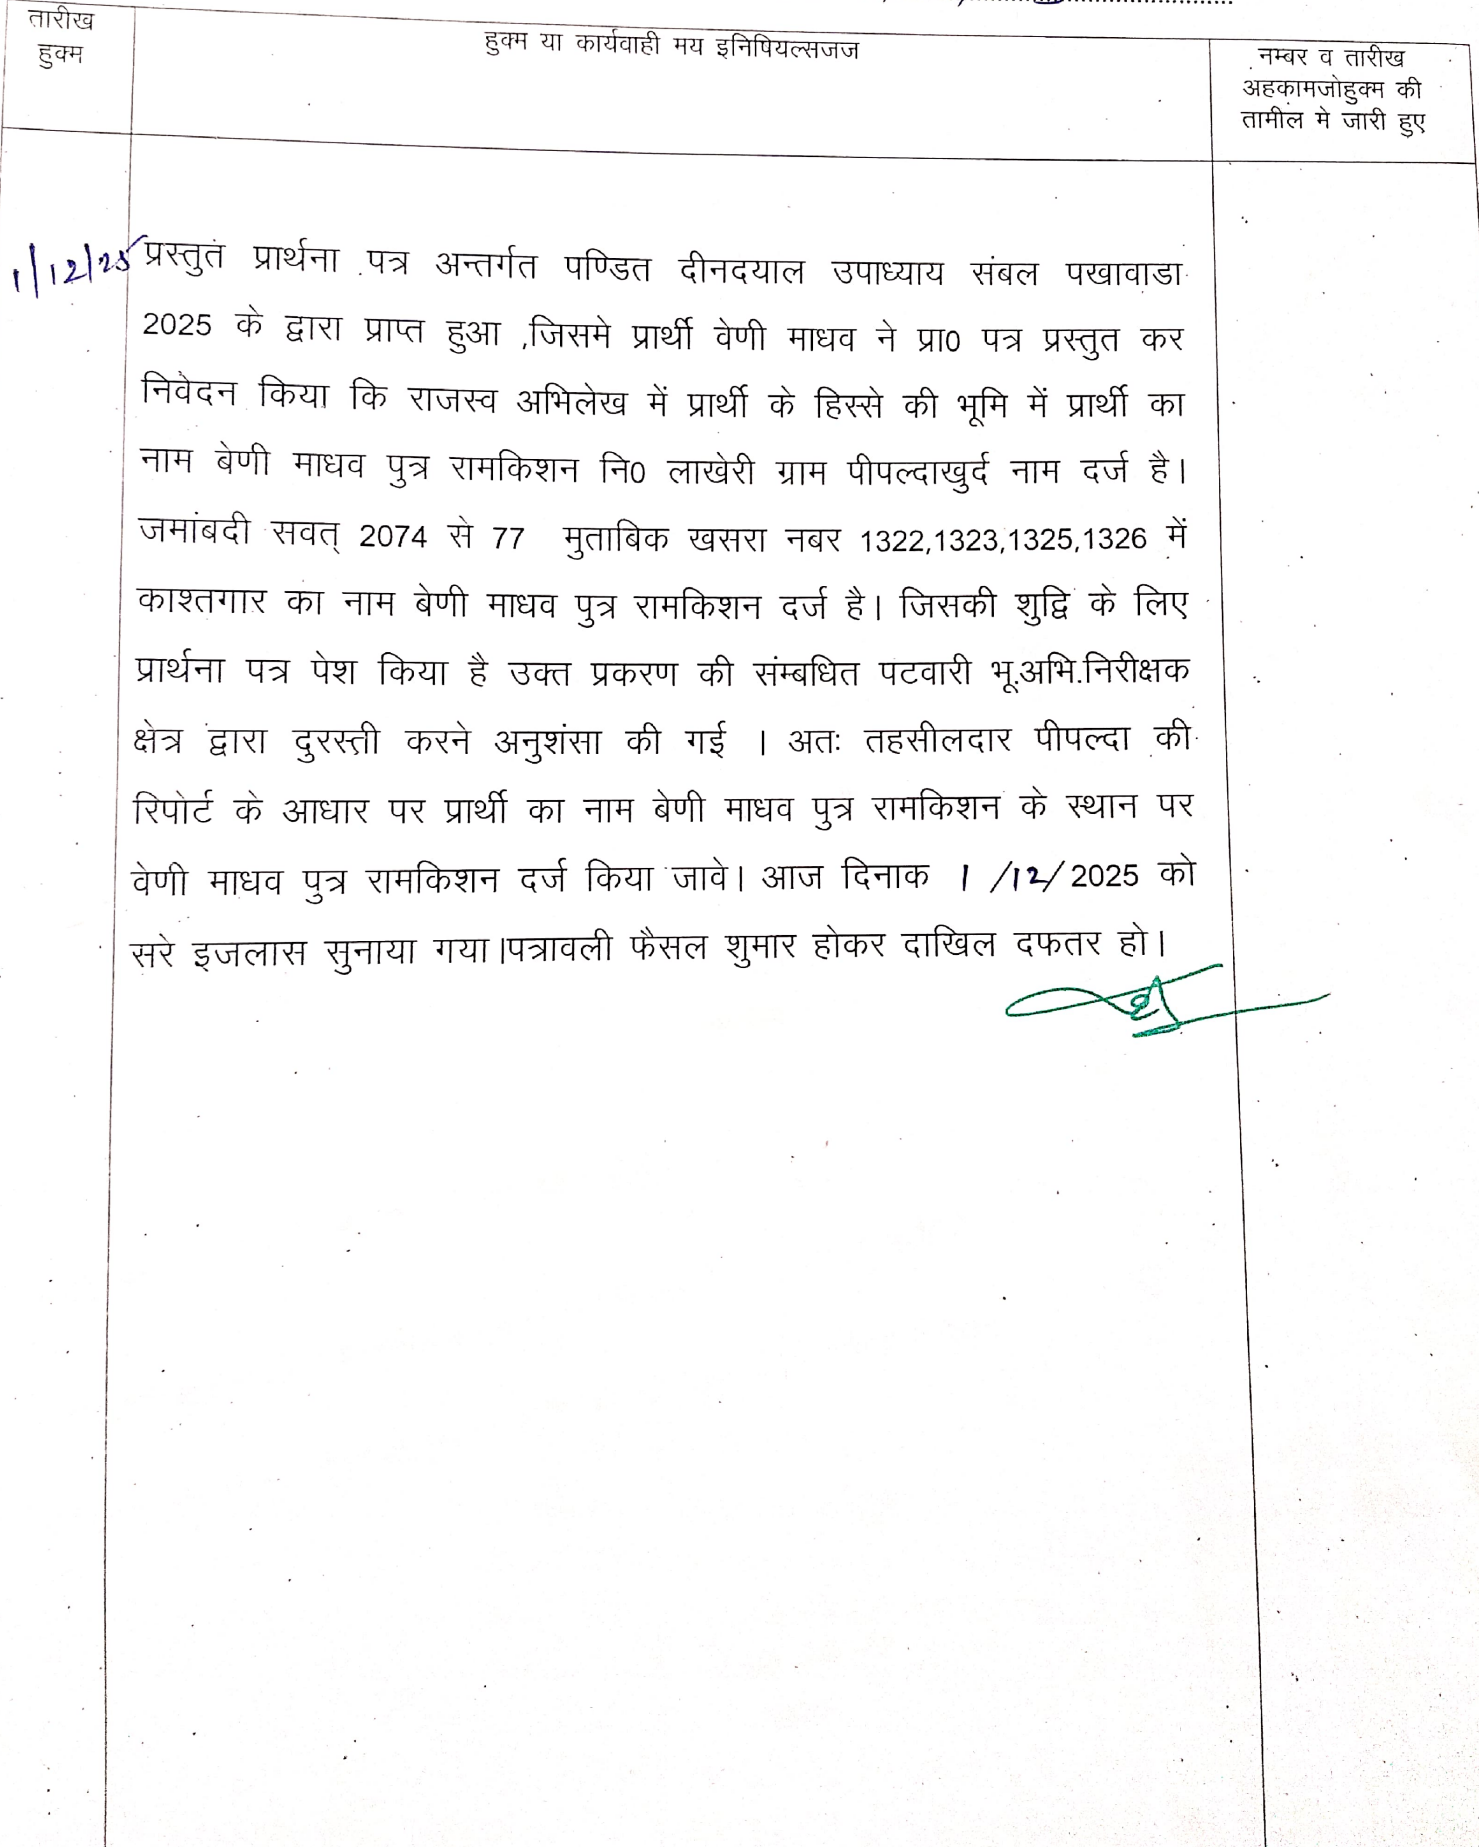 तारीख
हुक्म
हुक्म या कार्यवाही मय इनिपियल्सजज
नम्बर व तारीख
अहकामजोहुक्म की
तामील मे जारी हुए
1/12/25
प्रस्तुत प्रार्थना पत्र अन्तर्गत पण्डित दीनदयाल उपाध्याय संबल पखावाडा
2025 के द्वारा प्राप्त हुआ ,जिसमे प्रार्थी वेणी माधव ने प्रा0 पत्र प्रस्तुत कर
निवेदन किया कि राजस्व अभिलेख में प्रार्थी के हिस्से की भूमि में प्रार्थी का
नाम बेणी माधव पुत्र रामकिशन नि0 लाखेरी ग्राम पीपल्दाखुर्द नाम दर्ज है।
जमांबदी सवत् 2074 से 77 मुताबिक खसरा नबर 1322,1323,1325,1326 में
काश्तगार का नाम बेणी माधव पुत्र रामकिशन दर्ज है। जिसकी शुद्वि के लिए
प्रार्थना पत्र पेश किया है उक्त प्रकरण की संम्बधित पटवारी भू.अभि.निरीक्षक
क्षेत्र द्वारा दुरस्ती करने अनुशंसा की गई । अतः तहसीलदार पीपल्दा की
रिपोर्ट के आधार पर प्रार्थी का नाम बेणी माधव पुत्र रामकिशन के स्थान पर
वेणी माधव पुत्र रामकिशन दर्ज किया जावे। आज दिनाक 1 /12/ 2025 को
सरे इजलास सुनाया गया।पत्रावली फैसल शुमार होकर दाखिल दफतर हो।